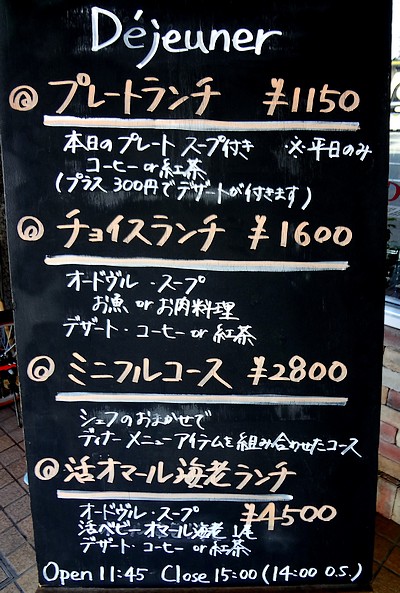 Déjeuner
プレートランチ ¥1150
本日のプレート スープ付き ※平日のみ
コーヒー or 紅茶
(プラス 300円でデザートが付きます)
チョイスランチ ¥1600
オードヴル・スープ
お魚 or お肉料理
デザート・コーヒー or 紅茶
ミニフルコース ¥2800
シェフのおまかせで
ディナーメニューアイテムを組み合わせたコース
活オマール海老ランチ
¥4500
オードヴル・スープ
活ベビーオマール海老 1尾
デザート・コーヒー or 紅茶
Open 11:45 Close 15:00 (14:00 O.S.)